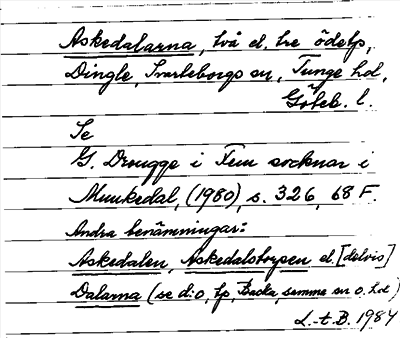 Askedalarna, två el. tre ödetp,
Dingle, Svarteborgs sn, Tunge hd,
Göteb. l.
Se
G. Drougge i Fem socknar i
Munkedal, (1980), s. 326, 68 F.
Andra benämningar:
Askedalen, Askedalstorpen el. [delvis]
Dalarna (se d:o, tp, Backa, samma sn o. hd)
L.-t. B. 1984